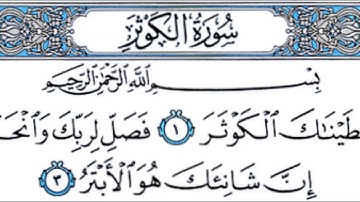 سُورَةُ الْكَوْثَرِ
بِسْمِ اللَّهِ الرَّحْمَٰنِ الرَّحِيمِ
طَيْنَـٰكَ ٱلْكَوْثَرَ ١ فَصَلِّ لِرَبِّكَ وَٱنْحَـ
إِنَّ شَانِئَكَ هُوَ ٱلْأَبْتَرُ ٣